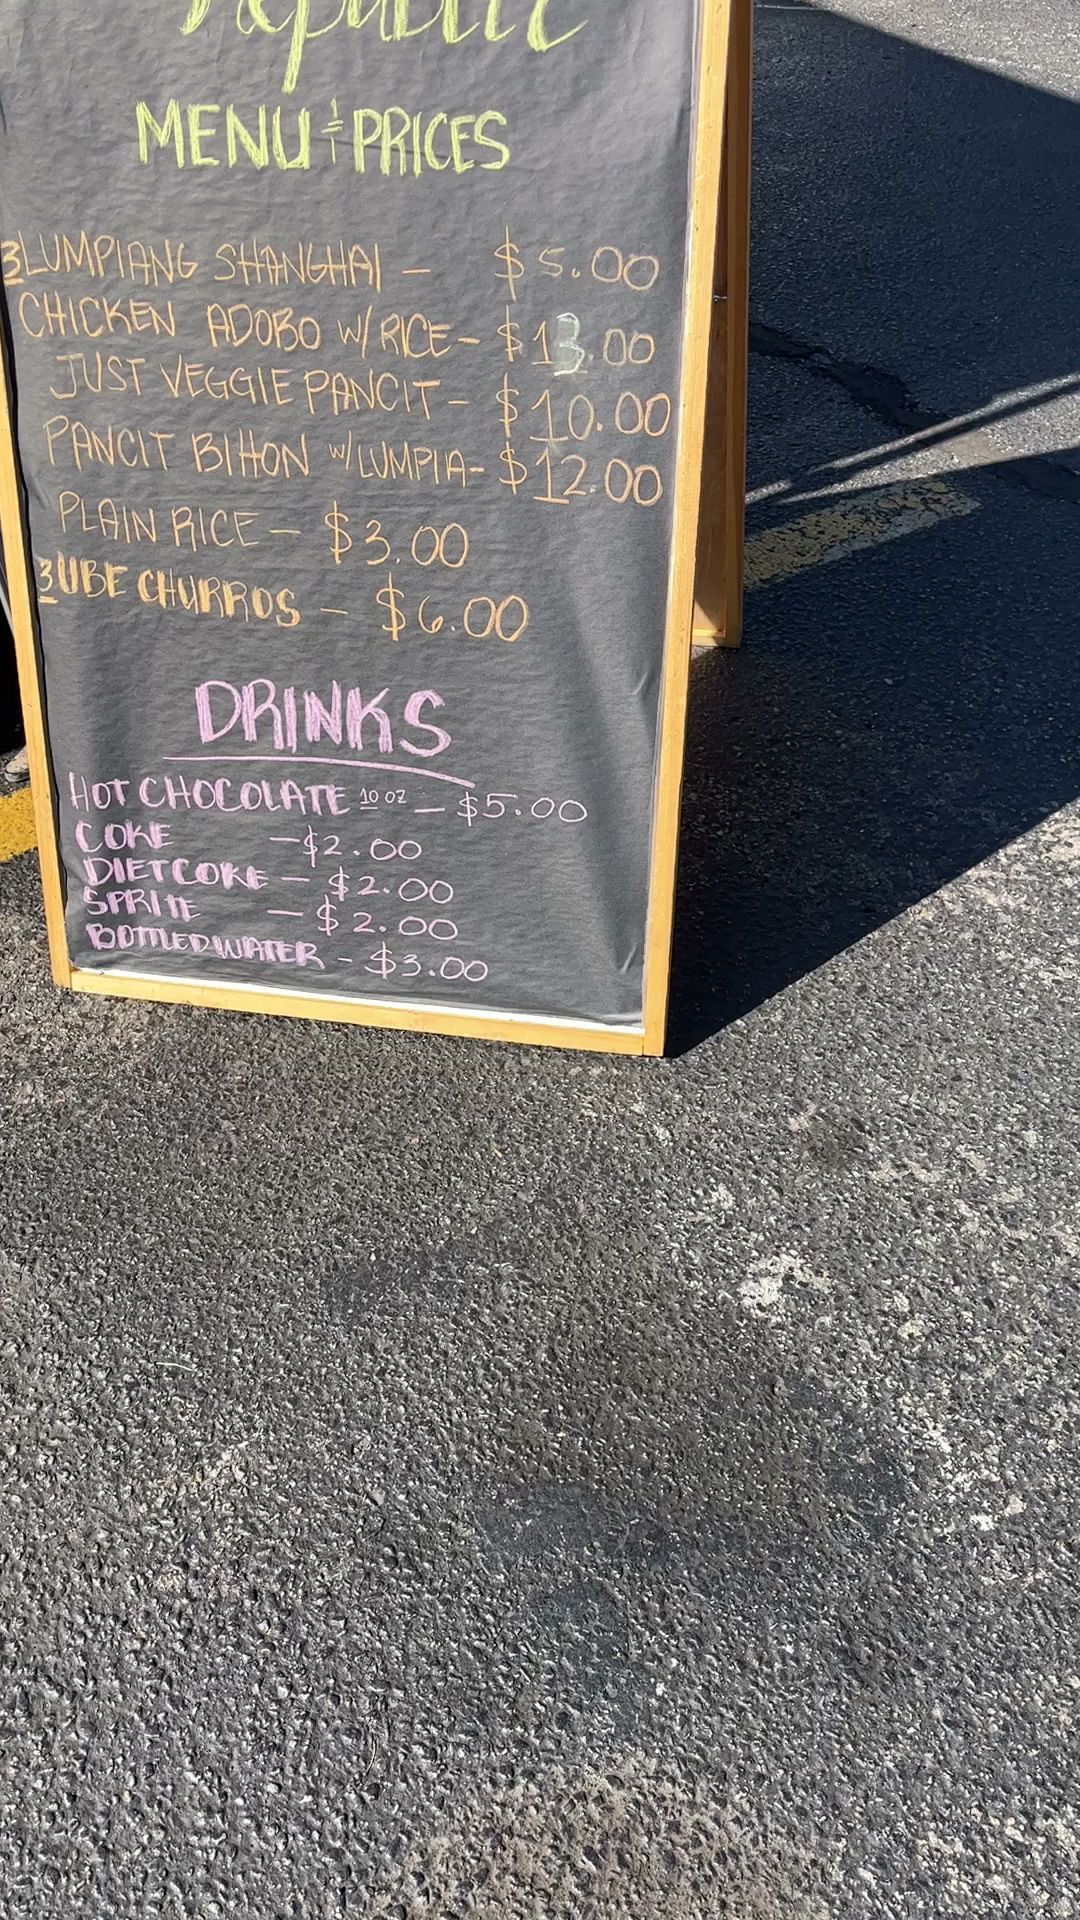 Republic
MENU & PRICES
3 LUMPIANG SHANGHAI - $5.00
CHICKEN ADOBO W/ RICE - $13.00
JUST VEGGIE PANCIT - $10.00
PANCIT BIHON W/ LUMPIA - $12.00
PLAIN RICE - $3.00
3 UBE CHURROS - $6.00
DRINKS
HOT CHOCOLATE 10 OZ - $5.00
COKE - $2.00
DIET COKE - $2.00
SPRITE - $2.00
BOTTLED WATER - $3.00